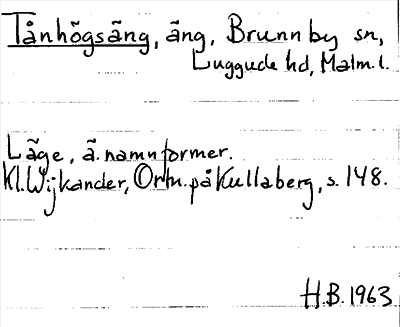 Tånhögsäng, äng, Brunnby sn,
Luggude hd, Malm.l.
Läge, ä. namnformer.
Kl. Wijkander, Ortn. på Kullaberg, s. 148.
H.B. 1963